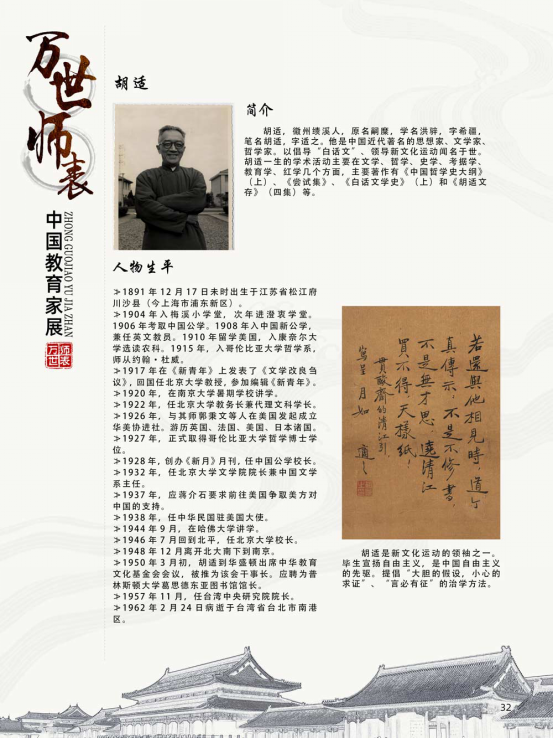 万世师表
中国教育家展
ZHONG GUOJIAO YU JIA ZHAN
万世
师表
胡适
简介
胡适，徽州绩溪人，原名嗣穈，学名洪骍，字希疆，
笔名胡适，字适之。他是中国近代著名的思想家、文学家、
哲学家。以倡导“白话文”、领导新文化运动闻名于世。
胡适一生的学术活动主要在文学、哲学、史学、考据学、
教育学、红学几个方面，主要著作有《中国哲学史大纲》
（上）、《尝试集》、《白话文学史》（上）和《胡适文
存》（四集）等。
人物生平
≫1891 年 12 月 17 日未时出生于江苏省松江府
川沙县（今上海市浦东新区）。
≫1904 年入梅溪小学堂，次年进澄衷学堂。
1906 年考取中国公学。1908 年入中国新公学，
兼任英文教员。1910 年留学美国，入康奈尔大
学选读农科。1915 年，入哥伦比亚大学哲学系，
师从约翰·杜威。
≫1917 年在《新青年》上发表了《文学改良刍
议》，回国任北京大学教授，参加编辑《新青年》。
≫1920 年，在南京大学暑期学校讲学。
≫1922 年，任北京大学教务长兼代理文科学长。
≫1926 年，与其师郭秉文等人在美国发起成立
华美协进社。游历英国、法国、美国、日本诸国。
≫1927 年，正式取得哥伦比亚大学哲学博士学
位。
≫1928 年，创办《新月》月刊，任中国公学校长。
≫1932 年，任北京大学文学院院长兼中国文学
系主任。
≫1937 年，应蒋介石要求前往美国争取美方对
中国的支持。
≫1938 年，任中华民国驻美国大使。
≫1944 年 9 月，在哈佛大学讲学。
≫1946 年 7 月回到北平，任北京大学校长。
≫1948 年 12 月离开北大南下到南京。
≫1950 年 3 月初，胡适到华盛顿出席中华教育
文化基金会会议，被推为该会干事长。应聘为普
林斯顿大学葛思德东亚图书馆馆长。
≫1957 年 11 月，任台湾中央研究院院长。
≫1962 年 2 月 24 日病逝于台湾省台北市南港
区。
若還與他相見時，道个
真傳示，不是不修書，
不是無才思，遶清江
買不得，天樣紙！
貫酸齋的清江引
寫呈月如
適之
胡适是新文化运动的领袖之一。
毕生宣扬自由主义，是中国自由主义
的先驱。提倡“大胆的假设，小心的
求证”、“言必有征”的治学方法。
32